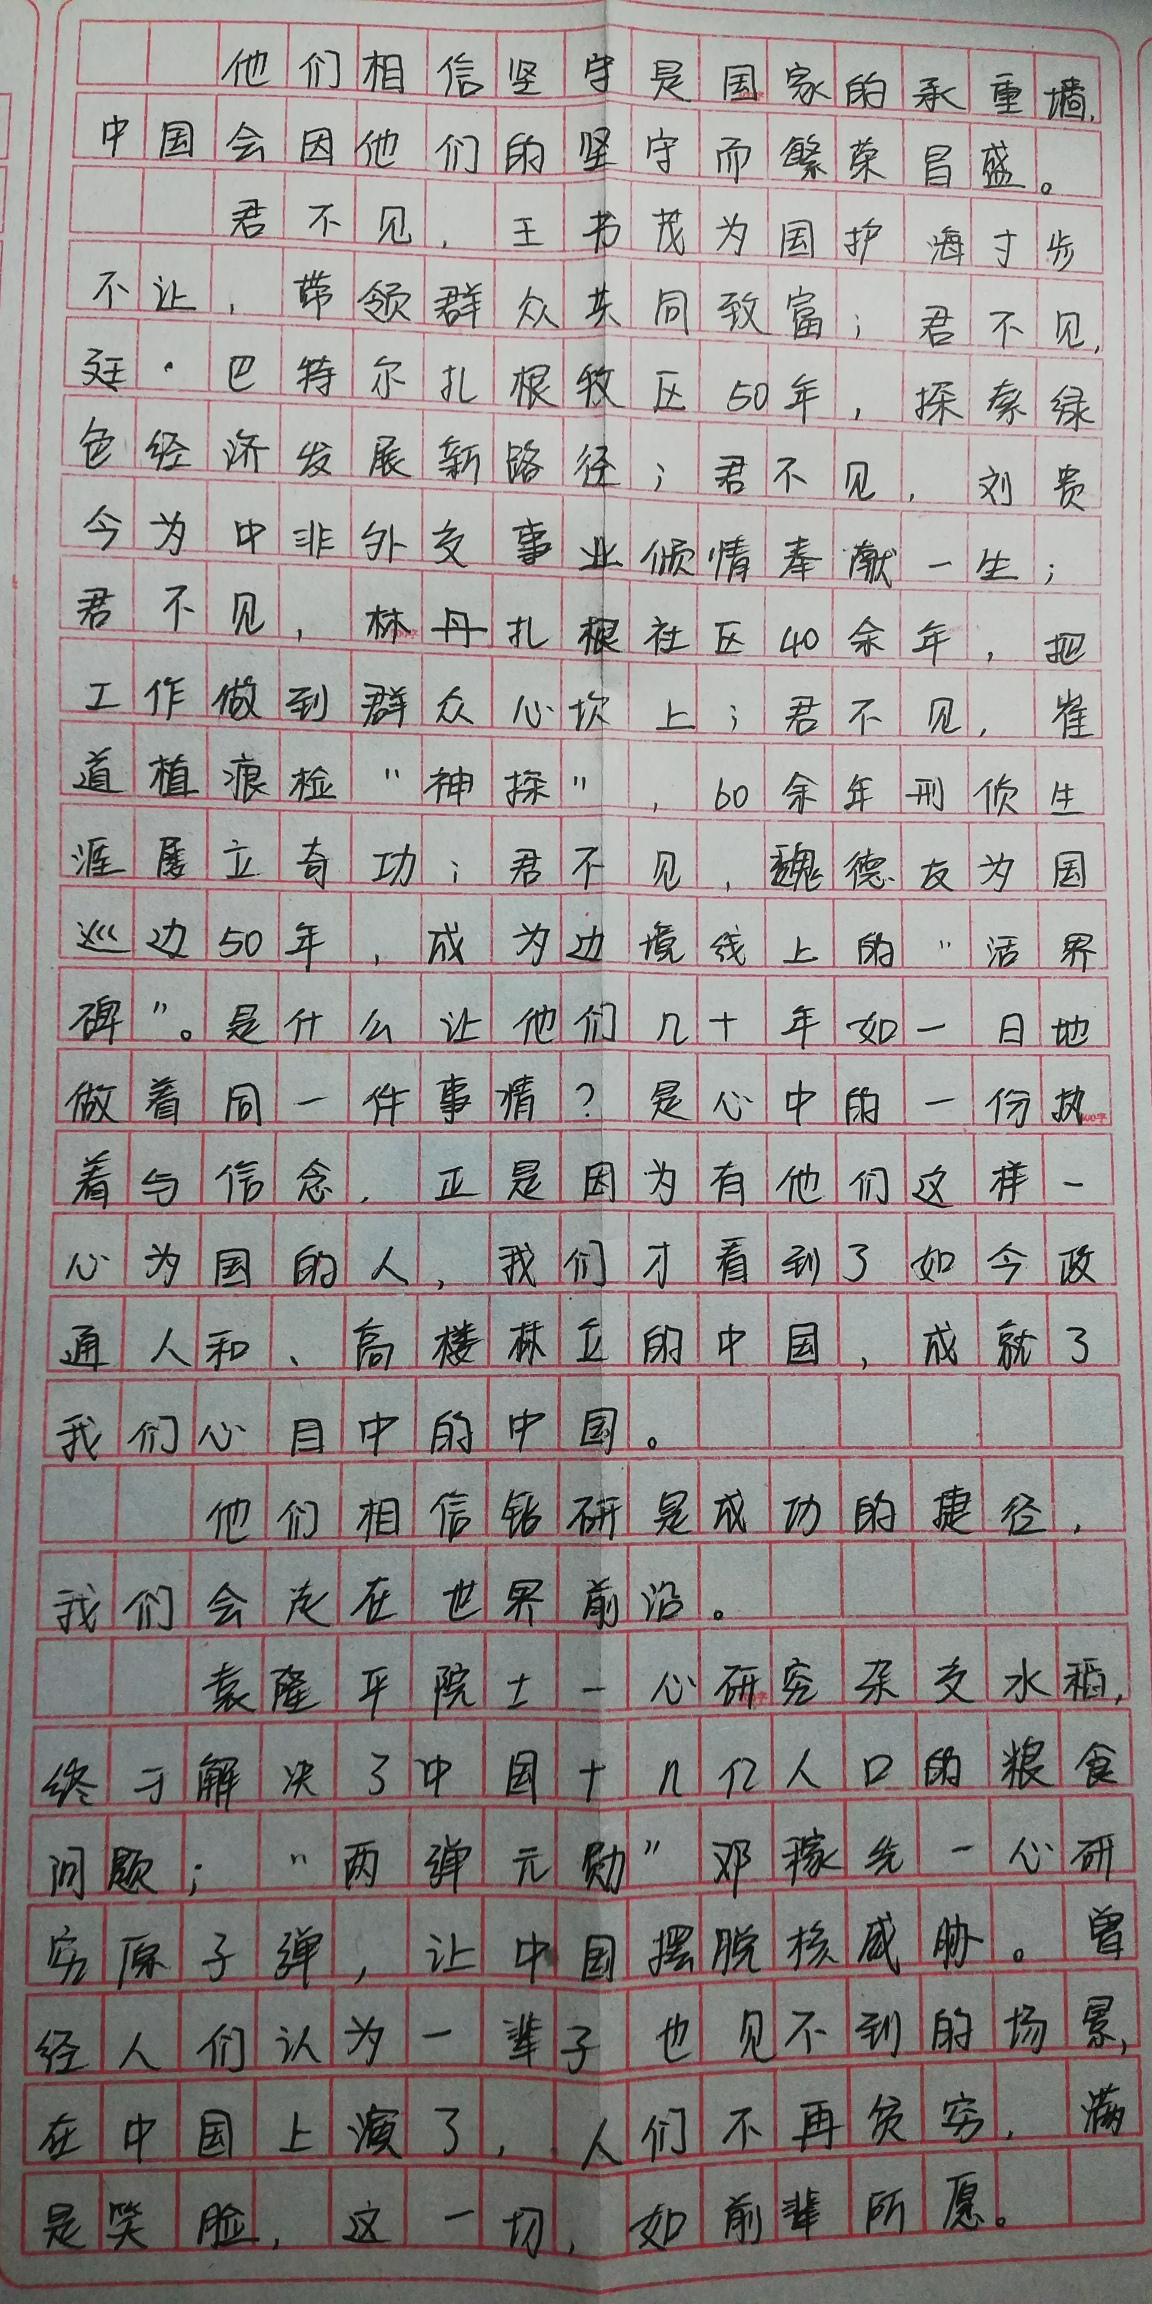 他们相信坚守是国家的承重墙，
中国会因他们的坚守而繁荣昌盛。
君不见，王书茂为国护海寸步
不让，带领群众共同致富；君不见，
廷·巴特尔扎根牧区50年，探索绿
色经济发展新路径；君不见，刘贵
今为中非外交事业倾情奉献一生；
君不见，林丹扎根社区40余年，把
工作做到群众心坎上；君不见，崔
道植痕检“神探”，60余年刑侦生
涯屡立奇功；君不见，魏德友为国
巡边50年，成为边境线上的“活界
碑”。是什么让他们几十年如一日地
做着同一件事情？是心中的一份执
着与信念，正是因为有他们这样一
心为国的人，我们才看到了如今政
通人和、高楼林立的中国，成就了
我们心目中的中国。
他们相信钻研是成功的捷径，
我们会走在世界前沿。
袁隆平院士一心研究杂交水稻，
终于解决了中国十几亿人口的粮食
问题；“两弹元勋”邓稼先一心研
究原子弹，让中国摆脱核威胁。曾
经人们认为一辈子也见不到的场景，
在中国上演了，人们不再贫穷，满
是笑脸，这一切，如前辈所愿。